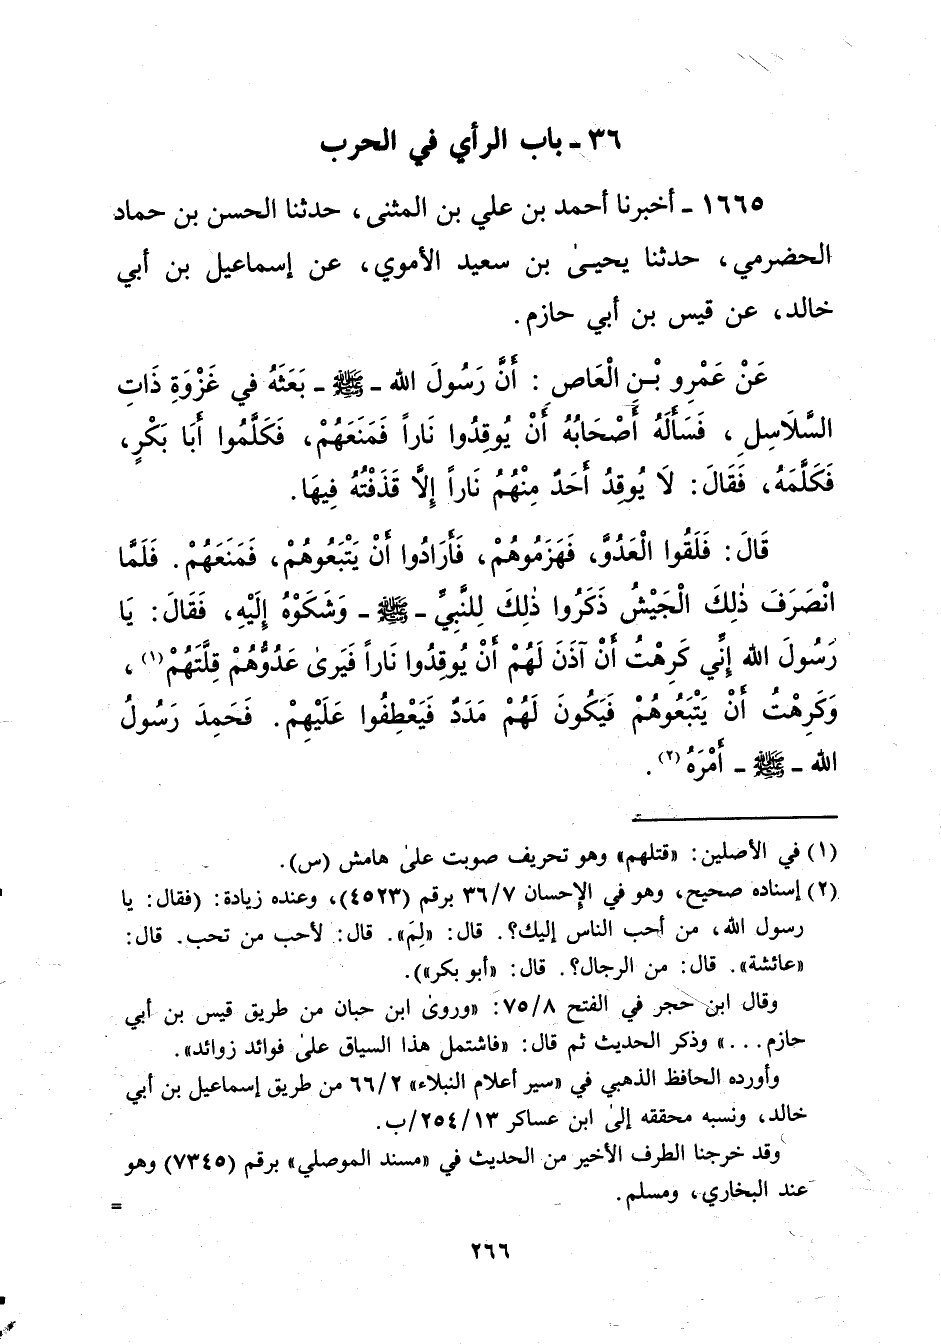 ٣٦ - باب الرأي في الحرب
١٦٦٥ - أخبرنا أحمد بن علي بن المثنى، حدثنا الحسن بن حماد
الحضرمي، حدثنا يحيىٰ بن سعيد الأموي، عن إسماعيل بن أبي
خالد، عن قيس بن أبي حازم.
عَنْ عَمْرِو بْنِ الْعَاصِ: أَنَّ رَسُولَ الله - ﷺ - بَعَثَهُ في غَزْوَةِ ذَاتِ
السَّلَاسِلِ، فَسَأَلَهُ أَصْحَابُهُ أَنْ يُوقِدُوا نَاراً فَمَنَعَهُمْ، فَكَلَّمُوا أَبَا بَكْرٍ،
فَكَلَّمَهُ، فَقَالَ: لَا يُوقِدُ أَحَدٌ مِنْهُمْ نَاراً إِلَّا قَذَفْتُهُ فِيهَا.
قَالَ: فَلَقُوا الْعَدُوَّ، فَهَزَمُوهُمْ، فَأَرَادُوا أَنْ يَتْبَعُوهُمْ، فَمَنَعَهُمْ. فَلَمَّا
انْصَرَفَ ذٰلِكَ الْجَيْشُ ذَكَرُوا ذٰلِكَ لِلنَّبِيِّ - ﷺ - وَشَكَوْهُ إِلَيْهِ، فَقَالَ: يَا
رَسُولَ الله إِنِّي كَرِهْتُ أَنْ آذَنَ لَهُمْ أَنْ يُوقِدُوا نَاراً فَيَرىٰ عَدُوُّهُمْ قِلَّتَهُمْ(١)،
وَكَرِهْتُ أَنْ يَتْبَعُوهُمْ فَيَكُونَ لَهُمْ مَدَدٌ فَيَعْطِفُوا عَلَيْهِمْ. فَحَمِدَ رَسُولُ
الله - ﷺ - أَمْرَهُ(٢).
(١) في الأصلين: «قتلهم» وهو تحريف صوبت علىٰ هامش (س).
(٢) إسناده صحيح، وهو في الإحسان ٣٦/٧ برقم (٤٥٢٣)، وعنده زيادة: (فقال: يا
رسول الله، من أحب الناس إليك؟. قال: «لِمَ». قال: لأحب من تحب. قال:
«عائشة». قال: من الرجال؟. قال: «أبو بكر»).
وقال ابن حجر في الفتح ٧٥/٨: «وروىٰ ابن حبان من طريق قيس بن أبي
حازم...» وذكر الحديث ثم قال: «فاشتمل هذا السياق علىٰ فوائد زوائد».
وأورده الحافظ الذهبي في «سير أعلام النبلاء» ٦٦/٢ من طريق إسماعيل بن أبي
خالد، ونسبه محققه إلىٰ ابن عساكر ٢٥٤/١٣/ب.
وقد خرجنا الطرف الأخير من الحديث في «مسند الموصلي» برقم (٧٣٤٥) وهو
عند البخاري، ومسلم.
=
٢٦٦